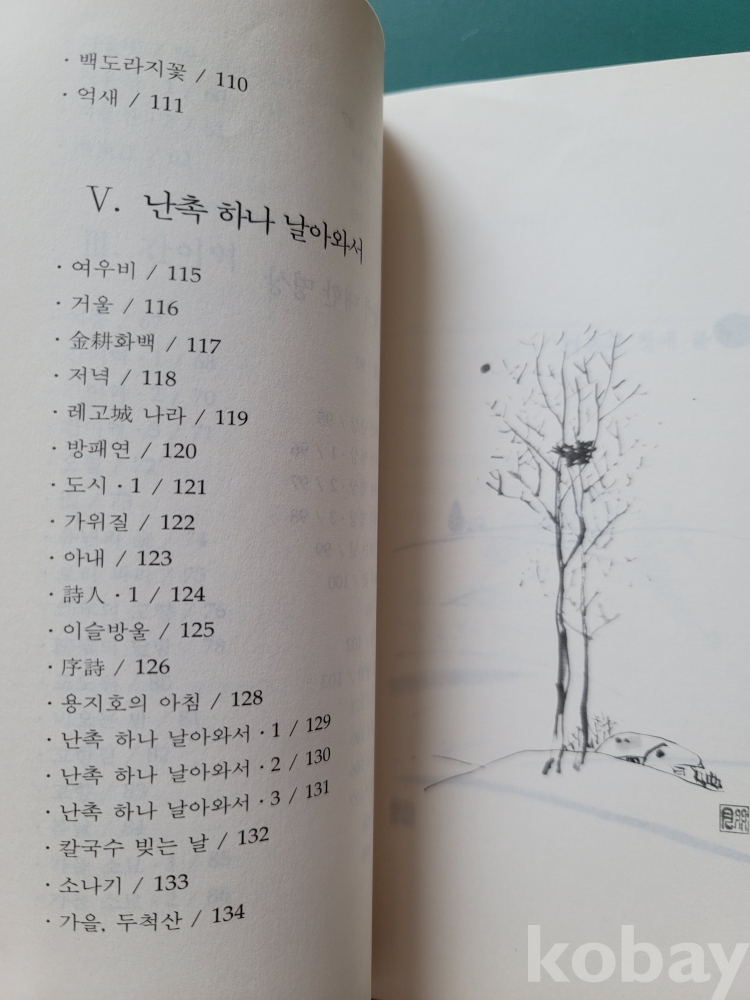 · 백도라지꽃 / 110
· 억새 / 111
V. 난촉 하나 날아와서
· 여우비 / 115
· 거울 / 116
· 金耕화백 / 117
· 저녁 / 118
· 레고城 나라 / 119
· 방패연 / 120
· 도시 · 1 / 121
· 가위질 / 122
· 아내 / 123
· 詩人 · 1 / 124
· 이슬방울 / 125
· 序詩 / 126
· 용지호의 아침 / 128
· 난촉 하나 날아와서 · 1 / 129
· 난촉 하나 날아와서 · 2 / 130
· 난촉 하나 날아와서 · 3 / 131
· 칼국수 빚는 날 / 132
· 소나기 / 133
· 가을, 두척산 / 134
kobay